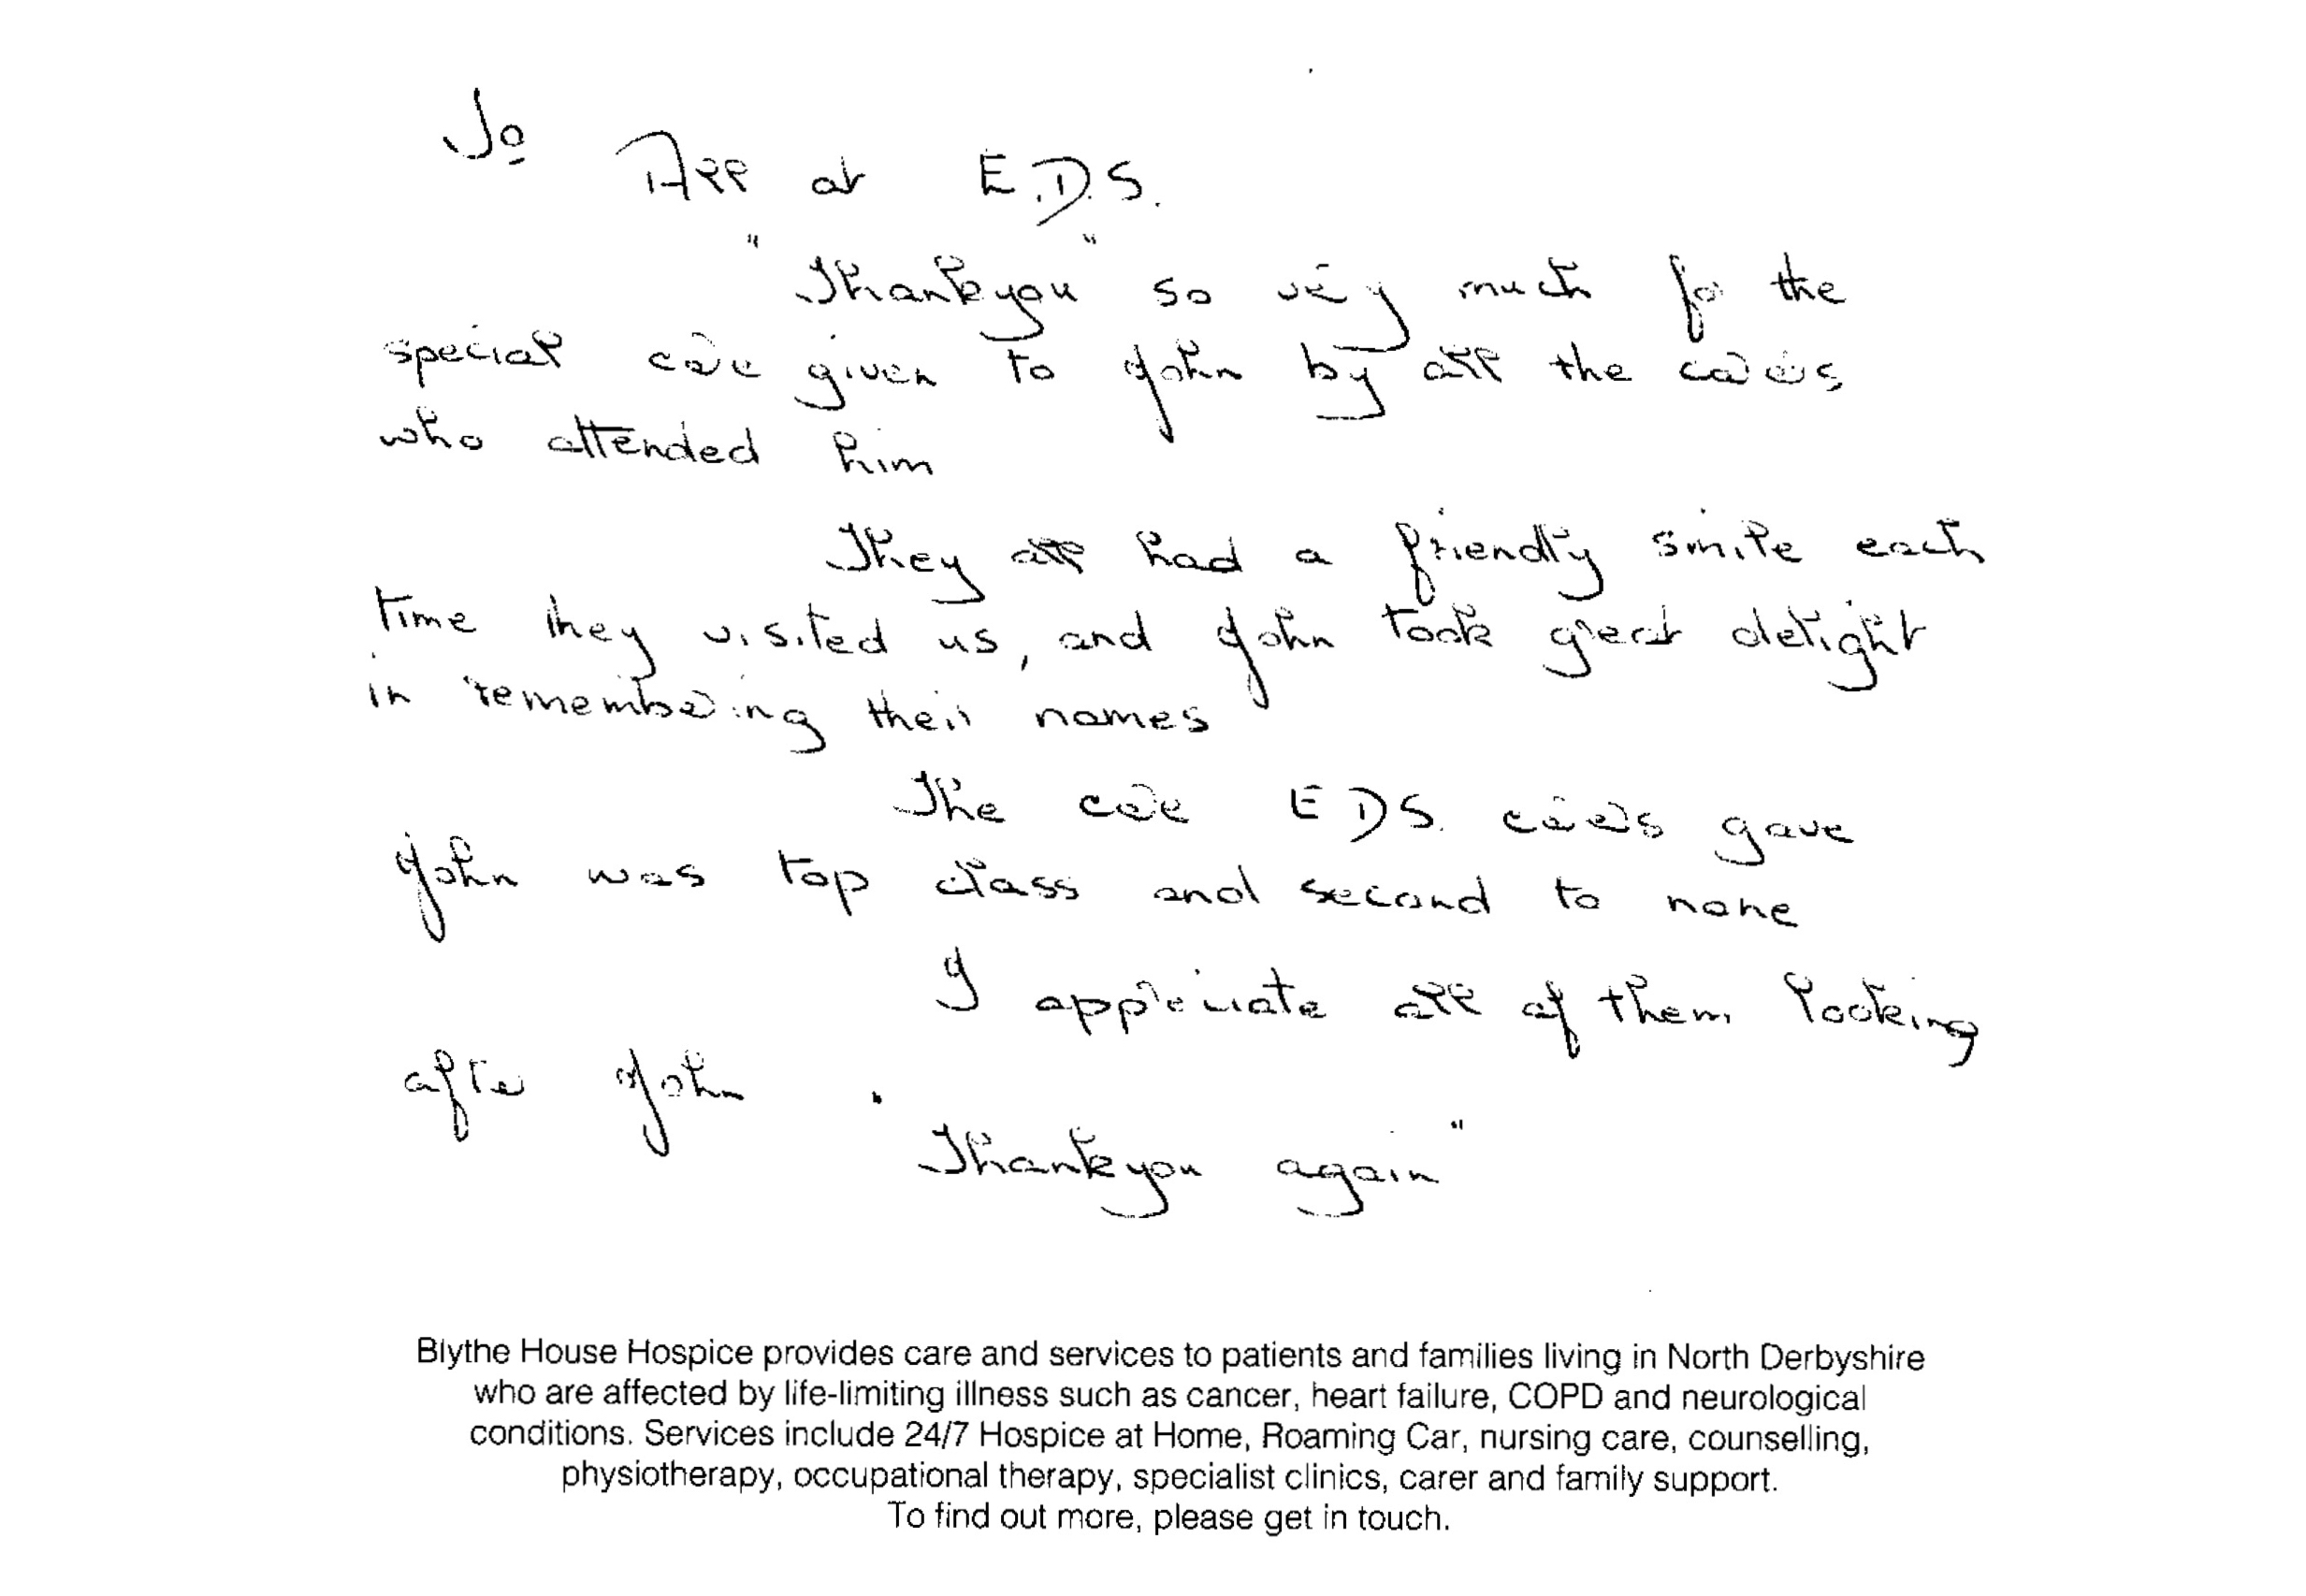 To
All at E.D.S.
"Thankyou" so very much for the
special care given to John by all the carers
who attended him
They all had a friendly smile each
time they visited us, and John took great delight
in remembering their names
The care EDS. carers gave
John was top class and second to none
I appreciate all of them looking
after John.
Thankyou again"
Blythe House Hospice provides care and services to patients and families living in North Derbyshire
who are affected by life-limiting illness such as cancer, heart failure, COPD and neurological
conditions. Services include 24/7 Hospice at Home, Roaming Car, nursing care, counselling,
physiotherapy, occupational therapy, specialist clinics, carer and family support.
To find out more, please get in touch.